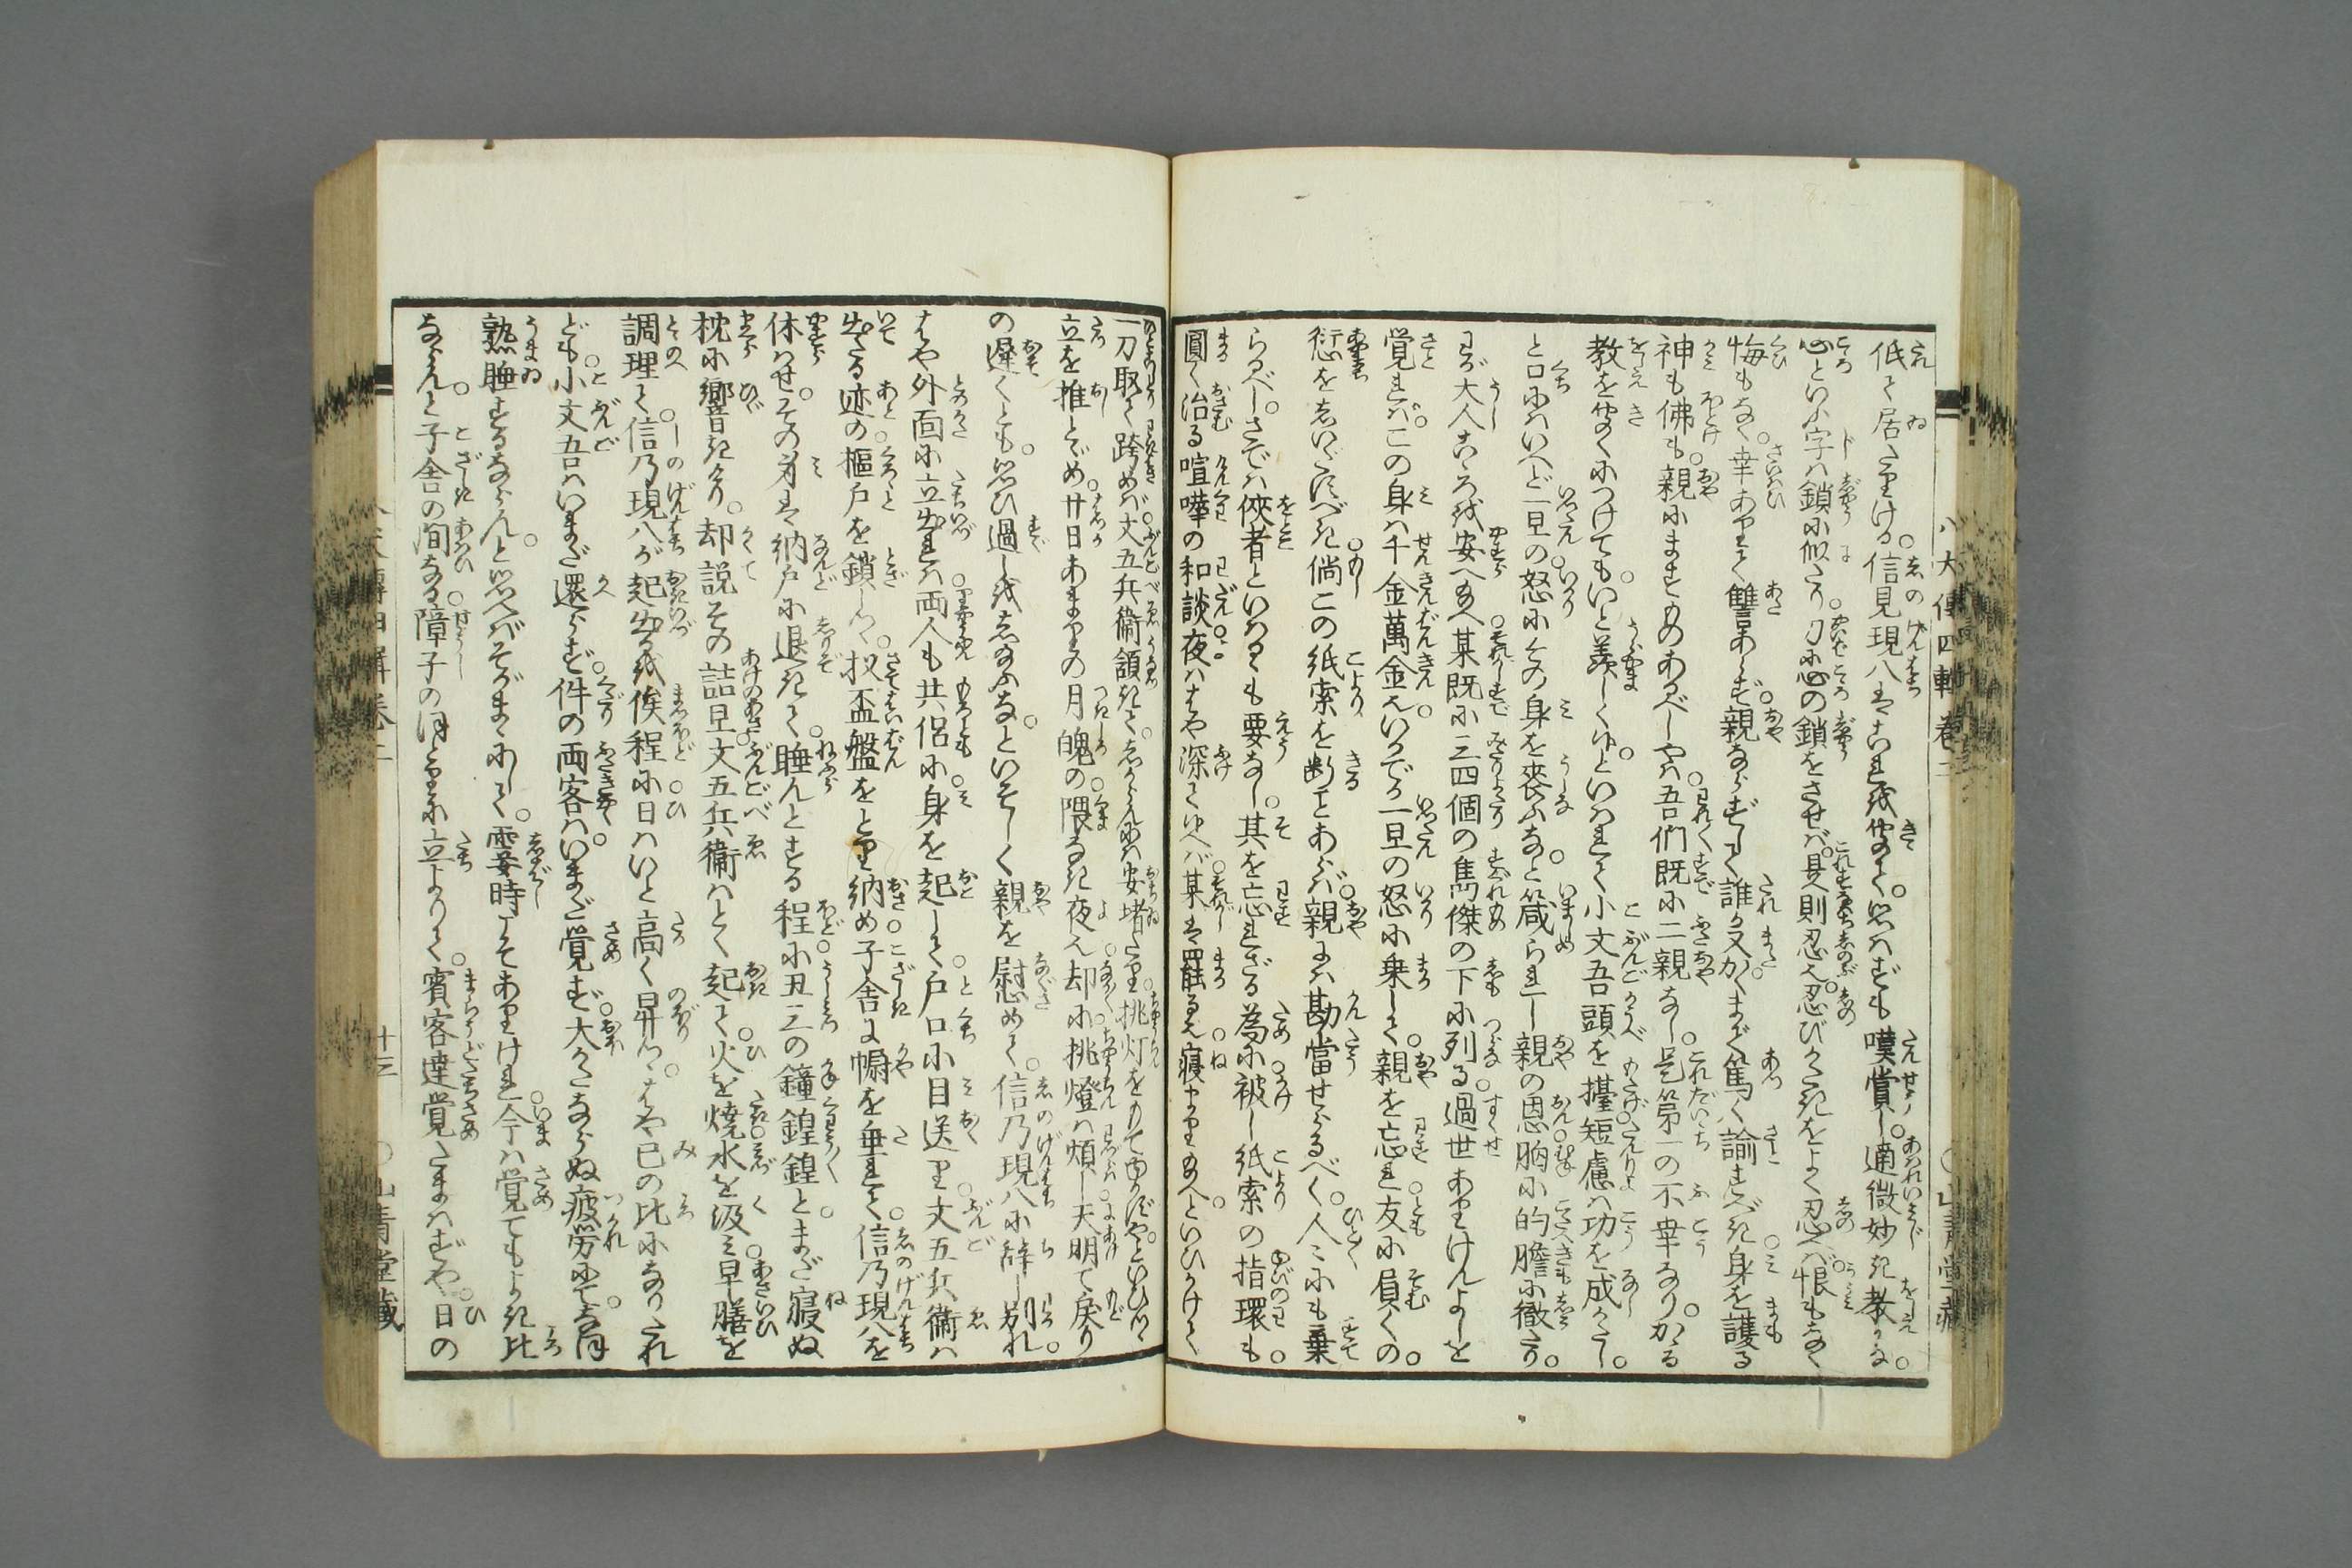 低て居たりける。信乃現八はこれを聞て。思はずも嘆賞し。適微妙き教かな。
心といふ字は鎖に似たり。刃に心の鎖をさせば。是則忍也。忍びがたきをよく忍べば。恨もなく
悔もなく。幸ありて讐あらず。親ならずして誰か又。かくまで篤く諭すべき。身を護る
神も佛も。親にますものあるべしや。吾們既に二親なし。是第一の不幸なり。かゝる
教を聞くにつけても。いと羨しく侍。といはれて小文吾頭を擡。短慮は功を成がたし。
と口にはいへど一旦の。怒にその身を喪ふな。と箴られし親の恩。胸に的膽に徹たり。
わが大人こゝろ安くおもへ。某既に三四個の雋傑の下に列る。過世ありけんよしを
覚れば。この身は千金萬金也。いかでか一旦の怒に乗して。親を忘れ友に負くの。
愆をしいだすべき。倘この紙索を断ことあらば。親には勘當せらるべく。人々にも棄
らるべし。さでは侠者といはるゝも要なし。其を忘れざる為に被し紙索の指環も。
圓く治る喧嘩の和談。夜ははや深て候へば。某は罷るなり。寝まり給へ。といひかけて
一刀取て跨めば。文五兵衛頷きて。しからんには安堵たり。挑灯をもてゆかずや。といひつゝ
立を推とゞめ。廿日あまりの月魄の。隈なき夜也。却に挑燈は煩し。天明て戻り
の遅くとも。思ひ過しをし給ふな。といそしく親を慰めて。信乃現八に辞し別れ。
はや外面に立出れば。両人も共侶に。身を起して。戸口に目送り。文五兵衛は
出たる迹の樞戸を鎖しつゝ。扠盃盤をとり納め。子舎に幮を垂れて。信乃現八を
休はせ。その身は納戸に退きて。睡んとする程に。丑三の鐘鍠鍠と。まだ寝ぬ
枕に響きけり。却説その詰旦。文五兵衛はとく起て。火を焼水を汲み。早膳を
調理て。信乃現八が起出るを俟程に。日はいと高く昇りつゝ。はや巳の比になりたれ
ども。小文吾はいまだ還らず。件の両客は。いまだ覚ず。大かたならぬ疲労にて。なほ
熟睡するならん。と思へばそがまゝにして。霎時こそありけれ。今は覚てもよき比
ならん。と子舎の間なる障子のほとりに立よりて。賓客達覚たまはずや。日の